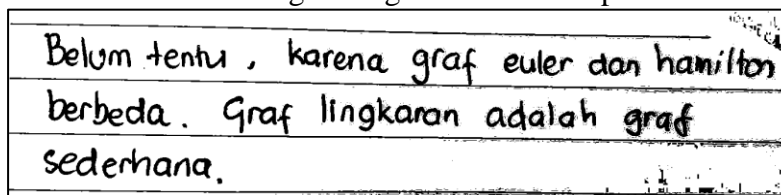 Belum tentu, karena graf euler dan hamilton
berbeda. Graf lingkaran adalah graf
sederhana.